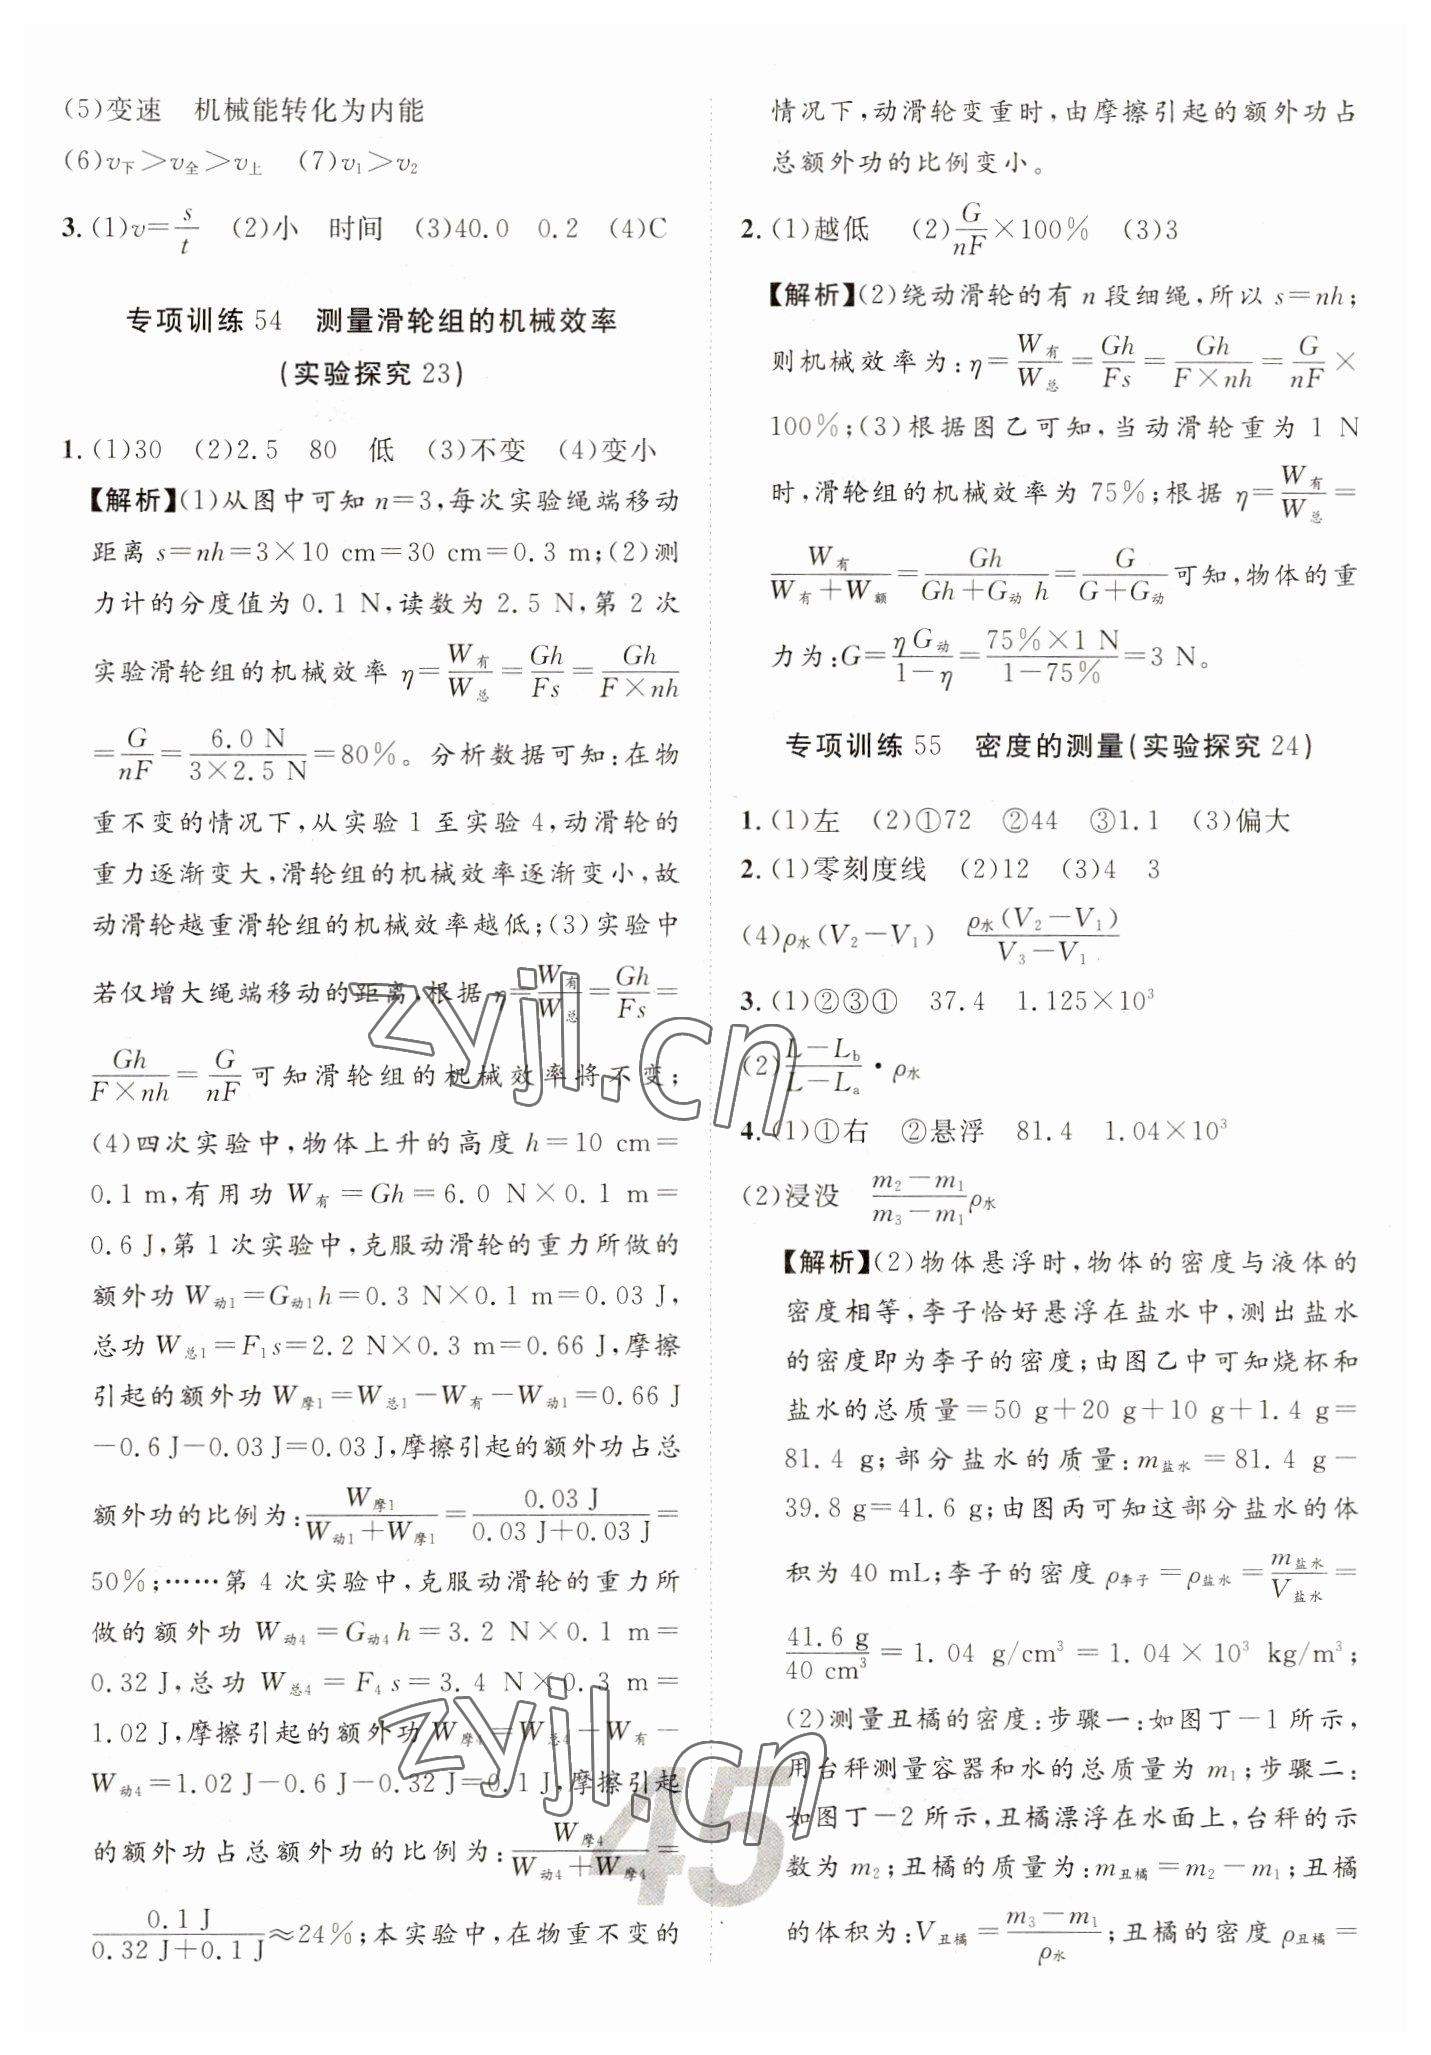 (5)变速　机械能转化为内能
(6)v下＞v全＞v上　(7)v₁＞v₂
3.(1)v=s/t　(2)小　时间　(3)40.0　0.2　(4)C
专项训练 54　测量滑轮组的机械效率
(实验探究 23)
1.(1)30　(2)2.5　80　低　(3)不变　(4)变小
【解析】(1)从图中可知 n=3,每次实验绳端移动
距离 s=nh=3×10 cm=30 cm=0.3 m;(2)测
力计的分度值为 0.1 N,读数为 2.5 N,第 2 次
实验滑轮组的机械效率 η=W有/W总=Gh/Fs=Gh/(F×nh)
=G/nF=6.0 N/(3×2.5 N)=80%。分析数据可知:在物
重不变的情况下,从实验 1 至实验 4,动滑轮的
重力逐渐变大,滑轮组的机械效率逐渐变小,故
动滑轮越重滑轮组的机械效率越低;(3)实验中
若仅增大绳端移动的距离,根据 η=W有/W总=Gh/Fs=
Gh/(F×nh)=G/nF 可知滑轮组的机械效率将不变;
(4)四次实验中,物体上升的高度 h=10 cm=
0.1 m,有用功 W有=Gh=6.0 N×0.1 m=
0.6 J,第 1 次实验中,克服动滑轮的重力所做的
额外功 W动1=G动1h=0.3 N×0.1 m=0.03 J,
总功 W总1=F₁s=2.2 N×0.3 m=0.66 J,摩擦
引起的额外功 W摩1=W总1-W有-W动1=0.66 J
-0.6 J-0.03 J=0.03 J,摩擦引起的额外功占总
额外功的比例为:W摩1/(W动1+W摩1)=0.03 J/(0.03 J+0.03 J)=
50%;……第 4 次实验中,克服动滑轮的重力所
做的额外功 W动4=G动4h=3.2 N×0.1 m=
0.32 J,总功 W总4=F₄s=3.4 N×0.3 m=
1.02 J,摩擦引起的额外功 W摩4=W总4-W有-
W动4=1.02 J-0.6 J-0.32 J=0.1 J,摩擦引起
的额外功占总额外功的比例为:W摩4/(W动4+W摩4)=
0.1 J/(0.32 J+0.1 J)≈24%;本实验中,在物重不变的
情况下,动滑轮变重时,由摩擦引起的额外功占
总额外功的比例变小。
2.(1)越低　(2)G/nF×100%　(3)3
【解析】(2)绕动滑轮的有 n 段细绳,所以 s=nh;
则机械效率为:η=W有/W总=Gh/Fs=Gh/(F×nh)=G/nF×
100%;(3)根据图乙可知,当动滑轮重为 1 N
时,滑轮组的机械效率为 75%;根据 η=W有/W总=
W有/(W有+W额)=Gh/(Gh+G动h)=G/(G+G动)可知,物体的重
力为:G=ηG动/(1-η)=(75%×1 N)/(1-75%)=3 N。
专项训练 55　密度的测量(实验探究 24)
1.(1)左　(2)①72　②44　③1.1　(3)偏大
2.(1)零刻度线　(2)12　(3)4　3
(4)ρ水(V₂-V₁)　ρ水(V₂-V₁)/(V₃-V₁)
3.(1)②③①　37.4　1.125×10³
(2)(L-Lb)/(L-La)·ρ水
4.(1)①右　②悬浮　81.4　1.04×10³
(2)浸没　(m₂-m₁)/(m₃-m₁)ρ水
【解析】(2)物体悬浮时,物体的密度与液体的
密度相等,李子恰好悬浮在盐水中,测出盐水
的密度即为李子的密度;由图乙中可知烧杯和
盐水的总质量=50 g+20 g+10 g+1.4 g=
81.4 g;部分盐水的质量:m盐水=81.4 g-
39.8 g=41.6 g;由图丙可知这部分盐水的体
积为 40 mL;李子的密度 ρ李子=ρ盐水=m盐水/V盐水=
41.6 g/40 cm³=1.04 g/cm³=1.04×10³ kg/m³;
(2)测量丑橘的密度:步骤一:如图丁-1 所示,
用台秤测量容器和水的总质量为 m₁;步骤二:
如图丁-2 所示,丑橘漂浮在水面上,台秤的示
数为 m₂;丑橘的质量为:m丑橘=m₂-m₁;丑橘
的体积为:V丑橘=(m₃-m₁)/ρ水;丑橘的密度 ρ丑橘=
45
zyjl.cn
zyjl.cn